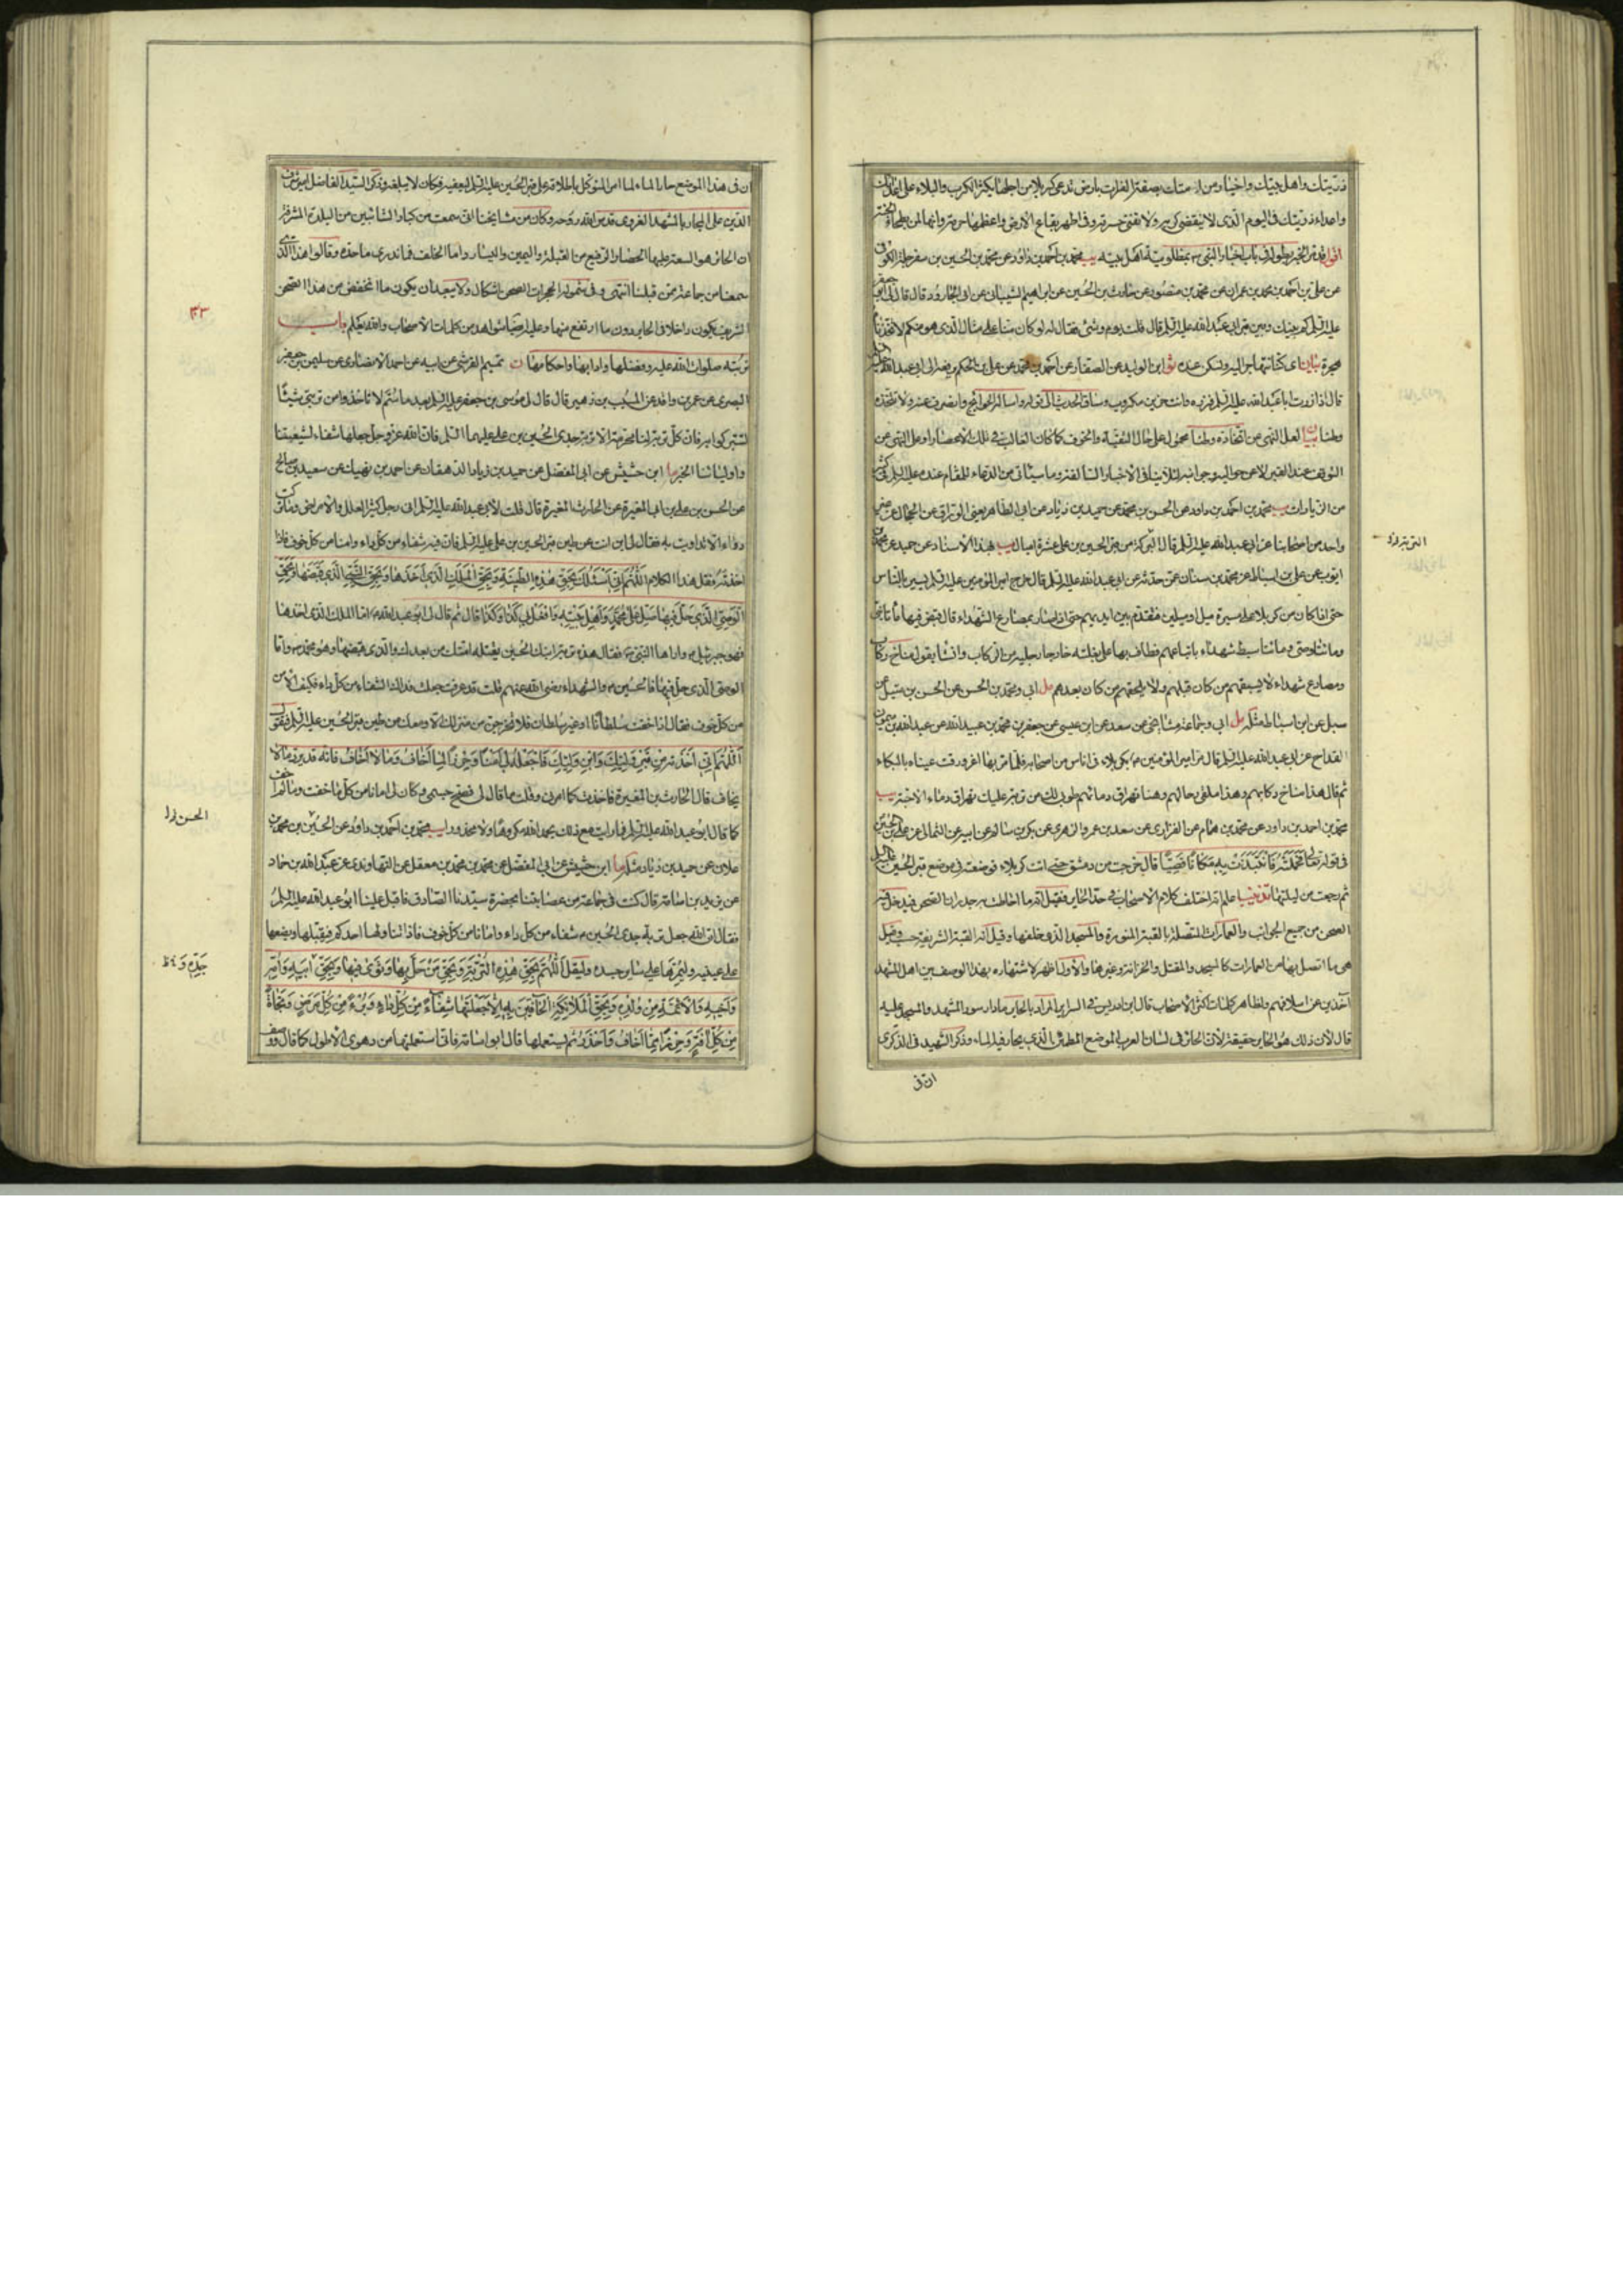 ذريتك واهل بيتك واخيار من امتك بضفة الفرات بارض تدعى كربلا من اجلها يكثر الكرب والبلاء على
واعداء ذريتك في اليوم الذي لا ينقضي كربه ولا تفنى حسرته وهي اطهر بقاع الارض واعظمها حرمة وانها لمن بطحاء الجنة
اقول قد مر الخبر بطوله في باب اخبار النبي بمظلومية اهل بيته يب محمد بن احمد بن داود عن محمد بن الحسين بن سفرجلة الكوفي
عن علي بن احمد بن محمد بن عمران عن محمد بن منصور عن حارث بن الحسين عن ابراهيم الشيباني عن ابي الجارود قال قال لي ابو جعفر
عليه السلم كم بينك وبين قبر ابي عبد الله عليه السلم قال قلت يوم وشيء فقال له لو كان منا على مثال الذي هو منكم لاتخذناه
هجرة بيان اي كنا نهاجر اليه ونسكن عنده ابن الوليد عن الصفار عن احمد بن محمد عن علي بن الحكم يرفعه الى ابي عبد الله عليه السلم
قال اذا زرت ابا عبد الله عليه السلم فزره وانت حزين مكروب وساق الحديث الى قوله واسأله الحوائج وانصرف عنه ولا تتخذه
وطنا بيان لعل النهي عن اتخاذه وطنا محمول على حال التقية والخوف كما كان الغالب في تلك الاعصار او على النهي عن
التوقف عند القبر لا عن حواليه وجوانبه لئلا ينافي الاخبار السالفة وما سيأتي من الدعاء للمقام عنده عليه السلم في كثير
من الزيارات يب محمد بن احمد بن داود عن الحسن بن محمد عن حميد بن زياد عن ابي الطاهر يعني الوراق عن الحجال عن غير
واحد من اصحابنا عن ابي عبد الله عليه السلم قال البركة من قبر الحسين بن علي عشرة اميال يب بهذا الاسناد عن حميد عن محمد بن
ايوب عن علي بن اسباط عن محمد بن سنان عمن حدثه عن ابي عبد الله عليه السلم قال خرج امير المؤمنين عليه السلم يسير بالناس
حتى اذا كان من كربلا على مسيرة ميل او ميلين فتقدم بين ايديهم حتى اذا صار بمصارع الشهداء قال قبض فيها مأتا نبي
ومأتا وصي ومأتا سبط شهداء باتباعهم فطاف بها على بغلته خارجا رجليه من الركاب وانشأ يقول مناخ ركاب
ومصارع شهداء لا يسبقهم من كان قبلهم ولا يلحقهم من كان بعدهم مل ابي ومحمد بن الحسن عن الحسن بن متيل عن
سهل عن ابن اسباط مثله مل ابي وجماعة مشايخي عن سعد عن ابن عيسى عن جعفر بن محمد بن عبيد الله عن عبد الله بن ميمون
القداح عن ابي عبد الله عليه السلم قال مر امير المؤمنين بكربلاء في اناس من اصحابه فلما مر بها اغرورقت عيناه بالبكاء
ثم قال هذا مناخ ركابهم وهذا ملقى رحالهم وهنا تهراق دمائهم طوبى لك من تربة عليك تهراق دماء الاحبة يب
محمد بن احمد بن داود عن محمد بن همام عن الفزاري عن سعد بن عمرو الزهري عن بكر بن سالم عن ابيه عن الثمالي عن علي بن الحسين
في قوله تعالى فحملته فانتبذت به مكانا قصيا قال خرجت من دمشق حتى اتت كربلاء فوضعته في موضع قبر الحسين عليه السلم
ثم رجعت من ليلتها تذنيب اعلم انه اختلف كلام الاصحاب في حد الحاير فقيل انه ما احاطت به جدران الصحن فيدخل فيه
الصحن من جميع الجوانب والعمارات المتصلة بالقبة المنورة والمسجد الذي خلفها وقيل انه القبة الشريفة حسب وقيل
هي ما اتصل بها من العمارات كالمسجد والمقتل والخزانة وغيرها والاول اظهر لاشتهاره بهذا الوصف بين اهل المشهد
آخذين عن اسلافهم ولظاهر كلمات اكثر الاصحاب قال ابن ادريس في السراير المراد بالحاير ما دار سور المشهد والمسجد عليه
قال لان ذلك هو الحاير حقيقة لان الحائر في لسان العرب الموضع المطمئن الذي يحار فيه الماء وذكر الشهيد في الذكرى
ان في
ان في هذا الموضع حار الماء لما امر المتوكل باطلاقه على قبر الحسين عليه السلم ليعفيه فكان لا يبلغه وذكر السيد الفاضل امير شرف
الدين علي المجاور بالمشهد الغروي قدس الله روحه وكان من مشايخنا اني سمعت من كبار الشائبين من البلدة المشرفة
ان الحائر هو السعة التي عليها الحصار الرفيع من القبلة واليمين واليسار واما الخلف فما ندري ما حده وقالوا هذا الذي
سمعنا من جماعة من قبلنا انتهى وفي شموله لحجرات الصحن اشكال ولا يبعد ان يكون ما انخفض من هذا الصحن
الشريف يكون داخلا في الحاير دون ما ارتفع منها وعليه ايضا شواهد من كلمات الاصحاب والله يعلم باب
تربته صلوات الله عليه وفضلها وادابها واحكامها ن تميم القرشي عن ابيه عن احمد الانصاري عن سليمن بن جعفر
البصري عن عمر بن واقد عن المسيب بن زهير قال قال لي موسى بن جعفر عليه السلم بعد ما سم لا تأخذوا من تربتي شيئا
لتتبركوا به فان كل تربة لنا محرمة الا تربة جدي الحسين بن علي عليهما السلم فان الله عز وجل جعلها شفاء لشيعتنا
واوليائنا الخبر ما ابن حشيش عن ابي المفضل عن حميد بن زياد الدهقان عن احمد بن نهيك عن سعيد بن صالح
عن الحسن بن علي بن ابي المغيرة عن الحارث المغيرة قال قلت لابي عبد الله عليه السلم اني رجل كثير العلل والامراض وما تركت
دواء الا تداويت به فقال لي اين انت عن طين قبر الحسين بن علي عليه السلم فان فيه شفاء من كل داء وامنا من كل خوف فاذا
اخذته فقل هذا الكلام اللهم اني اسئلك بحق هذه الطينة وبحق الملك الذي اخذها وبحق النبي الذي قبضها وبحق
الوصي الذي حل فيها صل على محمد واهل بيته وافعل بي كذا وكذا قال ثم قال لي ابو عبد الله اما الملك الذي اخذها
فهو جبرئيل واراها النبي فقال هذه تربة ابنك الحسين يقتله امتك من بعدك والذي قبضها وهو محمد واما
الوصي الذي حل فيها فالحسين والشهداء رضي الله عنهم قلت قد عرفت جعلت فداك الشفاء من كل داء فكيف الامن
من كل خوف فقال اذا خفت سلطانا او غير سلطان فلا تخرجن من منزلك الا ومعك من طين قبر الحسين عليه السلم فتقول
اللهم اني اخذته من قبر وليك وابن وليك فاجعله لي امنا وحرزا لما اخاف وما لا اخاف فانه قد يرد ما لا
يخاف قال الحارث بن المغيرة فاخذت كما امرني وقلت ما قال لي فصح جسمي وكان لي امانا من كل ما خفت وما لم اخف
كما قال ابو عبد الله عليه السلم فما رايت مع ذلك بحمد الله مكروها ولا محذورا يب محمد بن احمد بن داود عن الحسين بن محمد بن
علان عن حميد بن زياد مثله ما ابن حشيش عن ابي المفضل عن محمد بن محمد بن معقل عن النهاوندي عن عبد الله بن حماد
عن زيد بن اسامة قال كنت في جماعة من عصابتنا بحضرة سيدنا الصادق فاقبل علينا ابو عبد الله عليه السلم
فقال ان الله جعل تربة جدي الحسين شفاء من كل داء وامانا من كل خوف فاذا تناولها احدكم فليقبلها وليضعها
على عينيه وليمرها على ساير جسده وليقل اللهم بحق هذه التربة وبحق من حل بها وثوى فيها وبحق ابيه وامه
واخيه والائمة من ولده وبحق الملائكة الحافين به الا جعلتها شفاء من كل داء وبرءا من كل مرض ونجاة
من كل آفة وحرزا مما اخاف واحذر ثم ليستعملها قال ابو اسامة فاني استعملتها من دهري الاطول كما قال ووصف